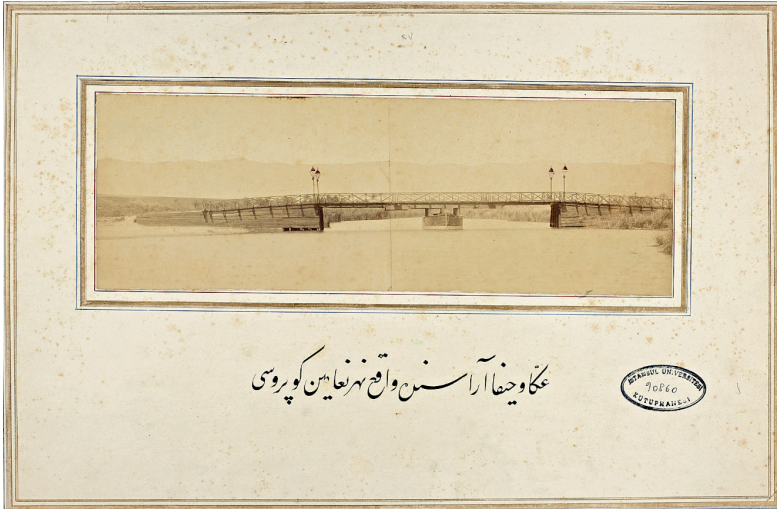 عكا و حيفا آراسنده واقع نهر نعامين كوپروسى
İSTANBUL ÜNİVERSİTESİ
90860
KÜTÜPHANESİ